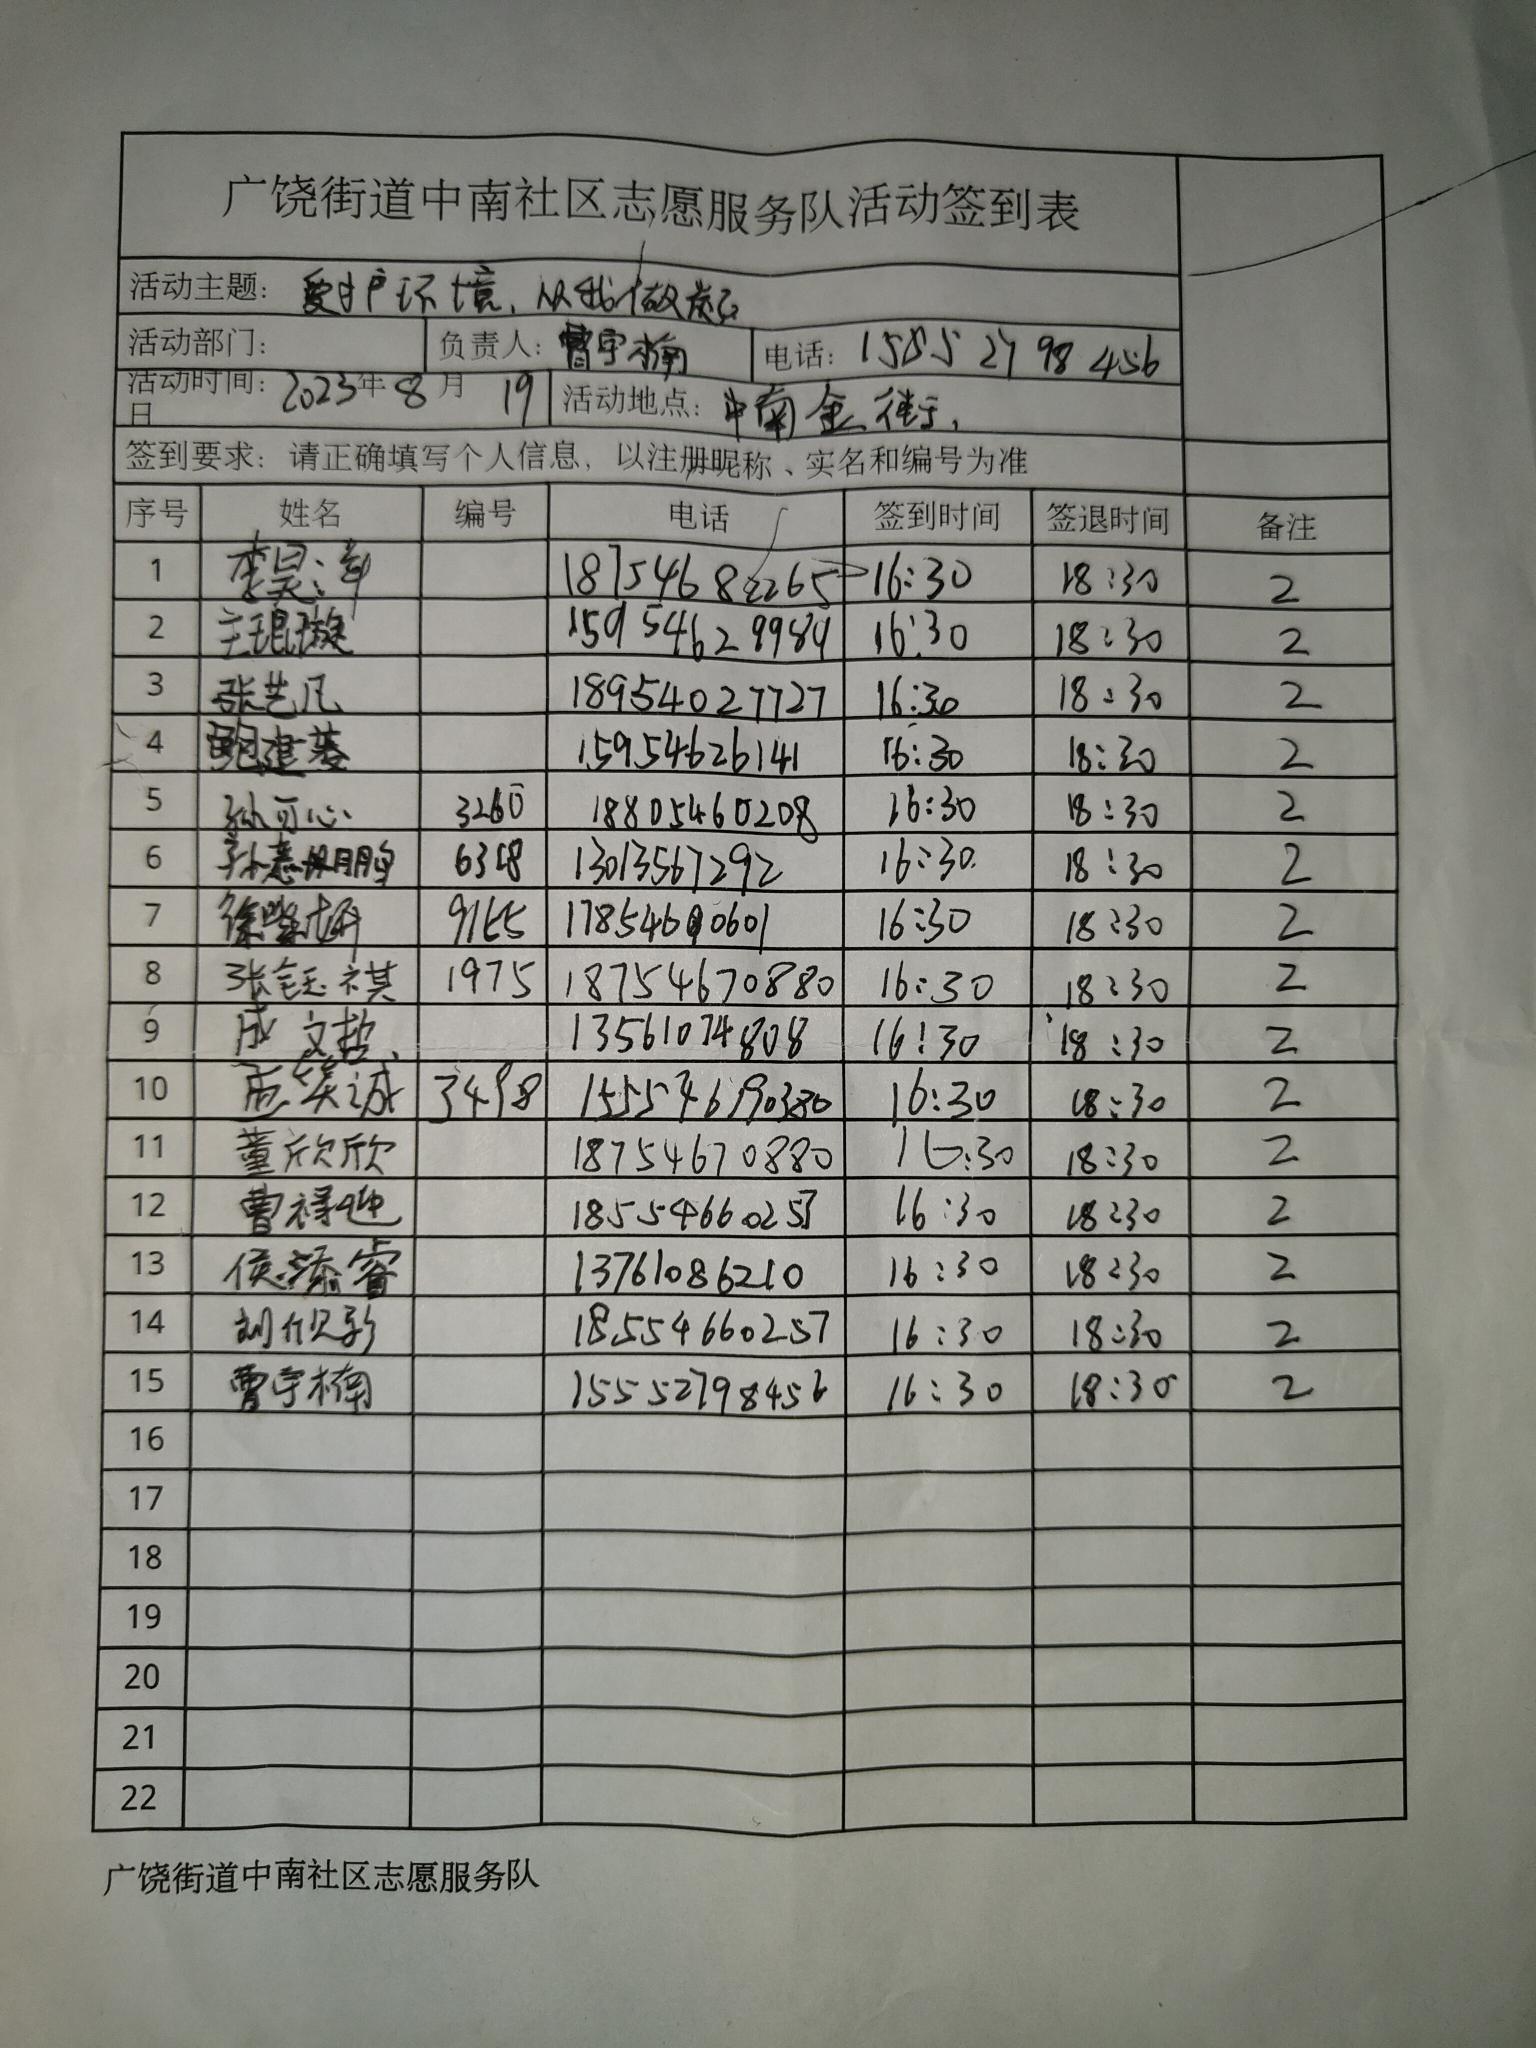 广饶街道中南社区志愿服务队活动签到表
活动主题：爱护环境，从我做起
活动部门： 负责人：曹宇楠 电话：15552798456
活动时间：2023年8月19日 活动地点：中南金街
签到要求：请正确填写个人信息，以注册昵称、实名和编号为准
序号 姓名 编号 电话 签到时间 签退时间 备注
1 李昊 18754682265 16:30 18:30 2
2 王琨璇 15954629989 16:30 18:30 2
3 张艺凡 18954027727 16:30 18:30 2
4 鲍建蓁 15954626141 16:30 18:30 2
5 孙可心 3260 18805460208 16:30 18:30 2
6 孙意鹏 6318 13013567292 16:30 18:30 2
7 徐 9165 17854690601 16:30 18:30 2
8 张钰祺 1975 18754670880 16:30 18:30 2
9 成文哲 13561074808 16:30 18:30 2
10 诚 3498 15554690380 16:30 18:30 2
11 董欣欣 18754670880 16:30 18:30 2
12 曹禄迎 18554660257 16:30 18:30 2
13 侯添睿 13761086210 16:30 18:30 2
14 刘欣彭 18554660257 16:30 18:30 2
15 曹宇楠 15552798456 16:30 18:30 2
16
17
18
19
20
21
22
广饶街道中南社区志愿服务队